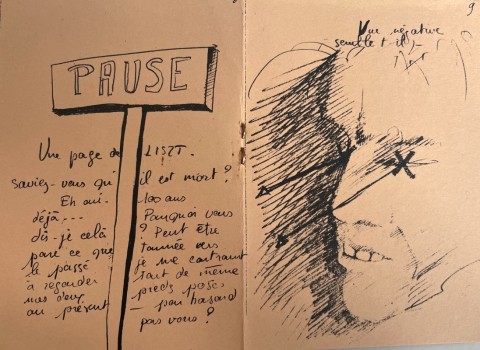 PAUSE
Une page de LISZT.
Saviez-vous qu' il est mort ?
Eh oui- 100 ans
déjà---- Pourquoi vous
dis-je celà ? Peut être
parce que tournée vers
le passé je me contraint
à regarder tout de même
mes deux pieds posés
au présent — par hasard
pas vous ?
9
négative
semble t-il)-